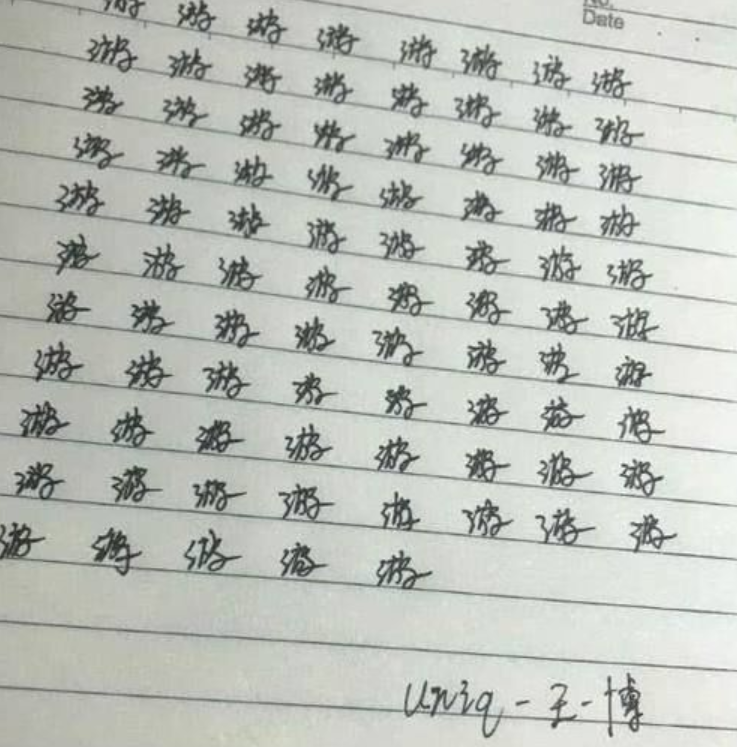 No.
Date
游 游 游 游 游 游 游 游
游 游 游 游 游 游 游 游
游 游 游 游 游 游 游 游
游 游 游 游 游 游 游 游
游 游 游 游 游 游 游 游
游 游 游 游 游 游 游 游
游 游 游 游 游 游 游 游
游 游 游 游 游 游 游 游
游 游 游 游 游 游 游 游
游 游 游 游 游 游 游 游
游 游 游 游 游
Uniq-王一博